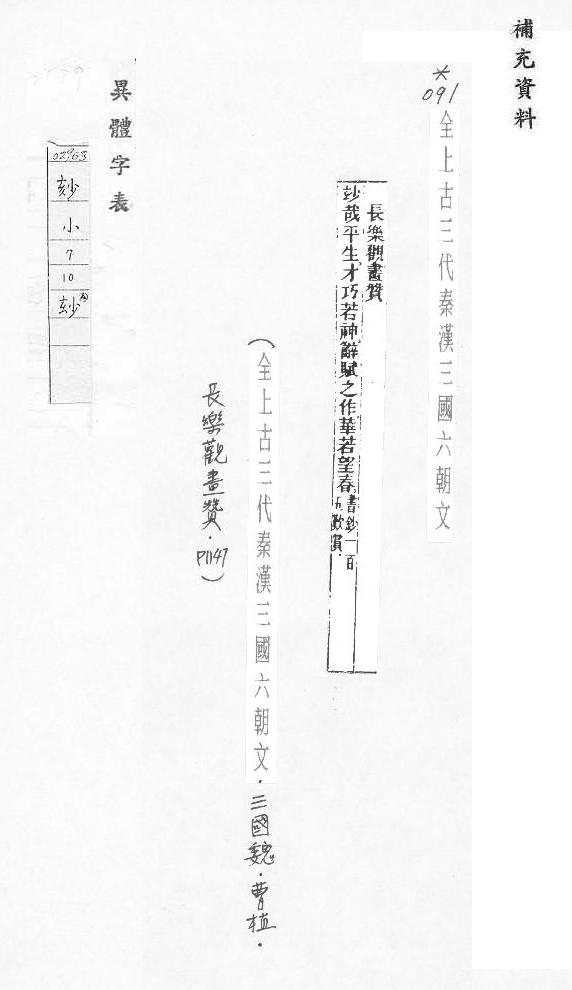 補充資料
*
091
全上古三代秦漢三國六朝文
長樂觀畫贊
玅哉平生才巧若神辭賦之作華若望春書鈔一百
五歎賞.
(全上古三代秦漢三國六朝文.三國魏.曹植.
長樂觀畫贊.P1147)
異體字表
02963
玅
小
7
10
玅